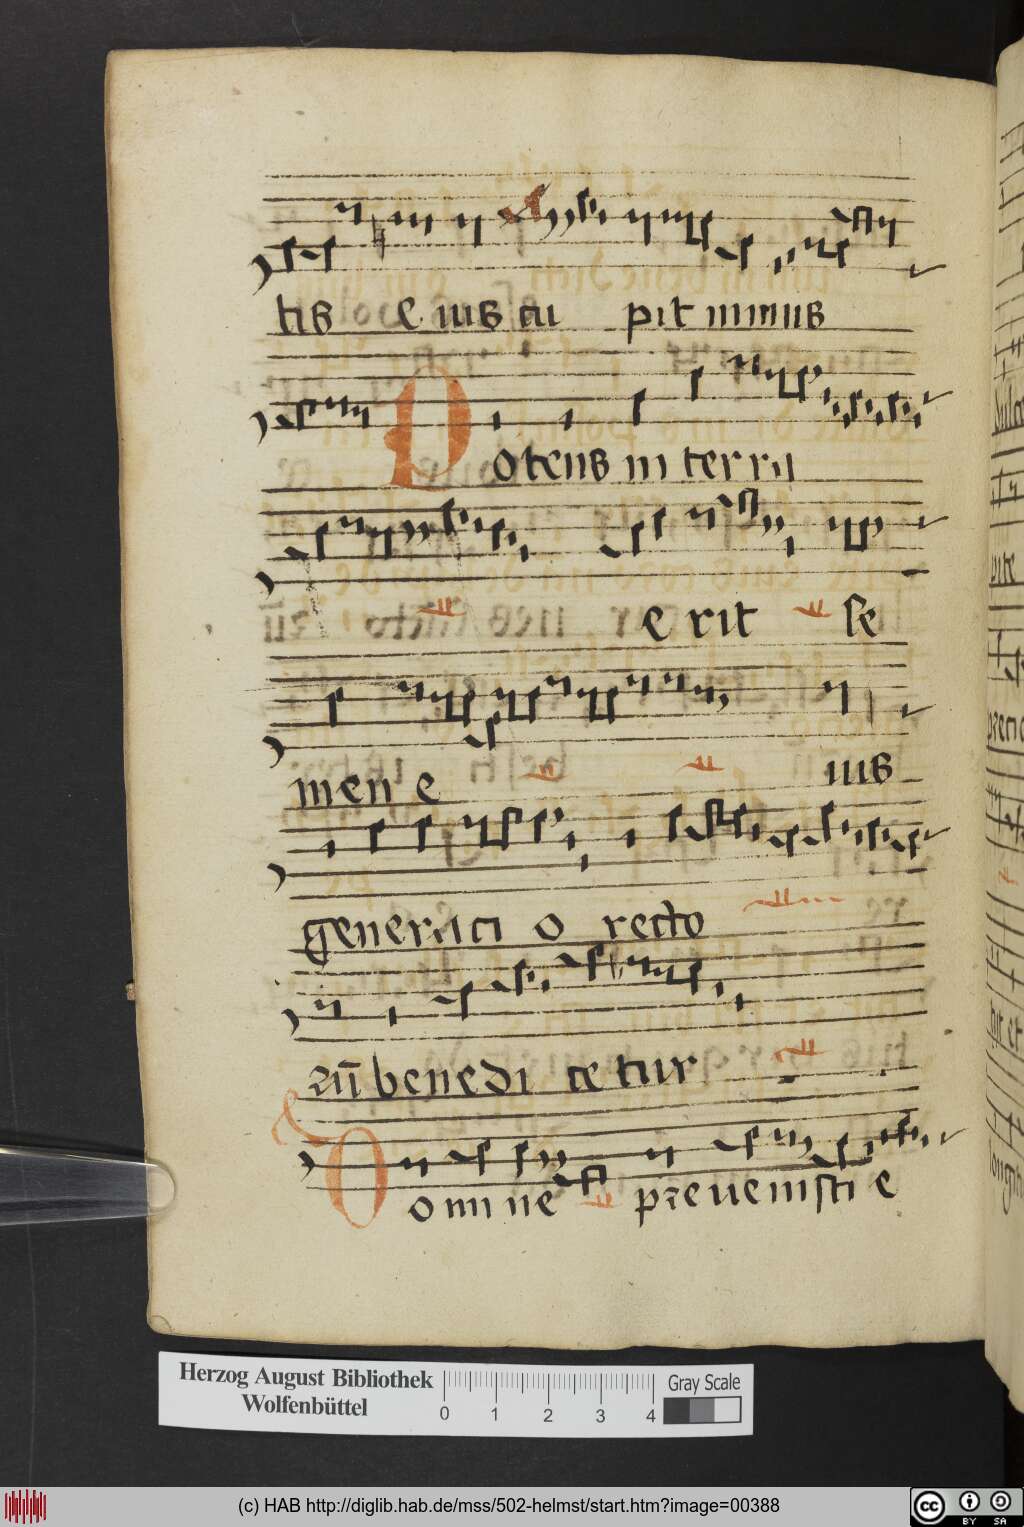 tis e ius cu pit nimis
Potens in terra
e rit se
men e ius
generaci o recto
rū benedi ce tur
Domine preuenisti e
Herzog August Bibliothek
Wolfenbüttel
0 1 2 3 4
Gray Scale
(c) HAB http://diglib.hab.de/mss/502-helmst/start.htm?image=00388
cc BY SA